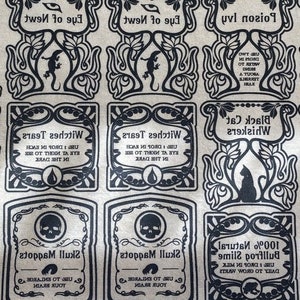 Eye of Newt
Eye of Newt
Poison Ivy
USE TWO
DROPS IN
WATER TO
BRING
ABOUT A
TERRIBLE
RASH
Witches Tears
USE: 1 DROP IN EACH
EYE AT NIGHT TO SEE
IN THE DARK
Witches Tears
USE: 1 DROP IN EACH
EYE AT NIGHT TO SEE
IN THE DARK
Black Cat
Whiskers
Skull Maggots
USE: TO ENLARGE
YOUR BRAIN
Skull Maggots
USE: TO ENLARGE
YOUR BRAIN
100% Natural
Bullfrog Slime
USE: 1 DROP PER
DAY TO GROW WARTS